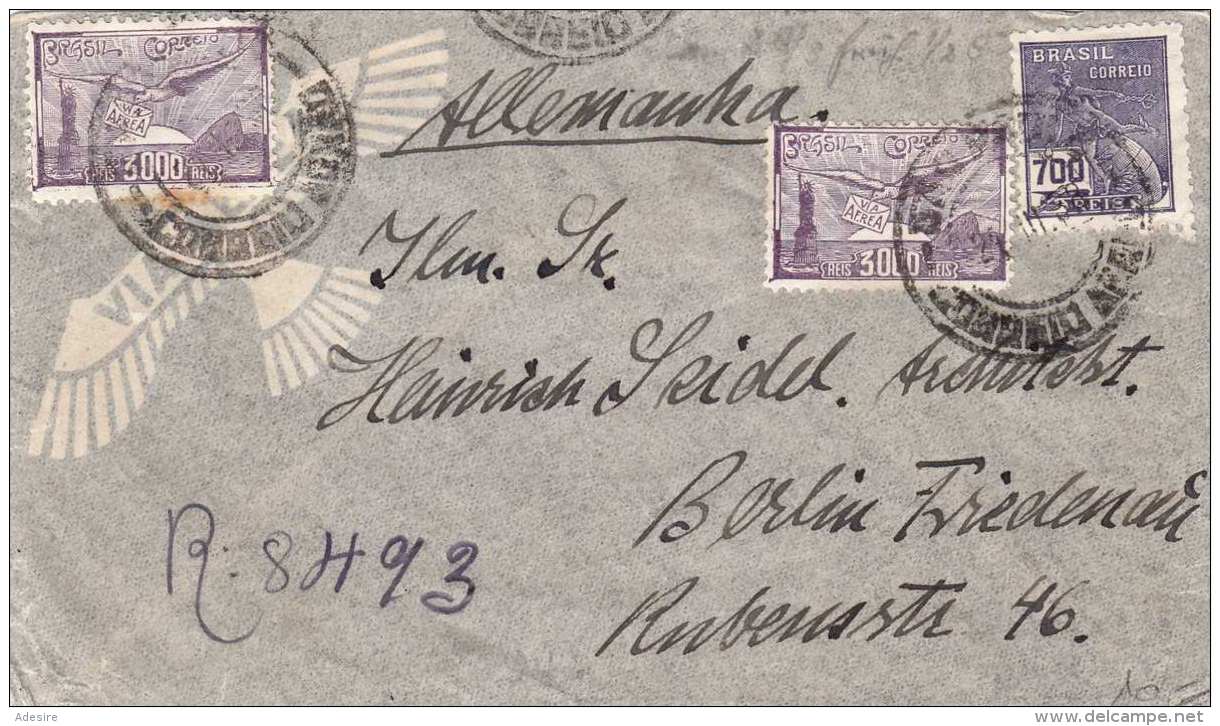 BRASIL CORREIO
VIA
AEREA
REIS 3000 REIS
Allemanha.
BRASIL
CORREIO
700
REIS
BRASIL CORREIO
VIA
AEREA
REIS 3000 REIS
VIA
Ilm. Sr.
Heinrich Seidel. Architekt.
Berlin Friedenau
Rubensstr 46.
R. 8493
Adesire
www.delcampe.net